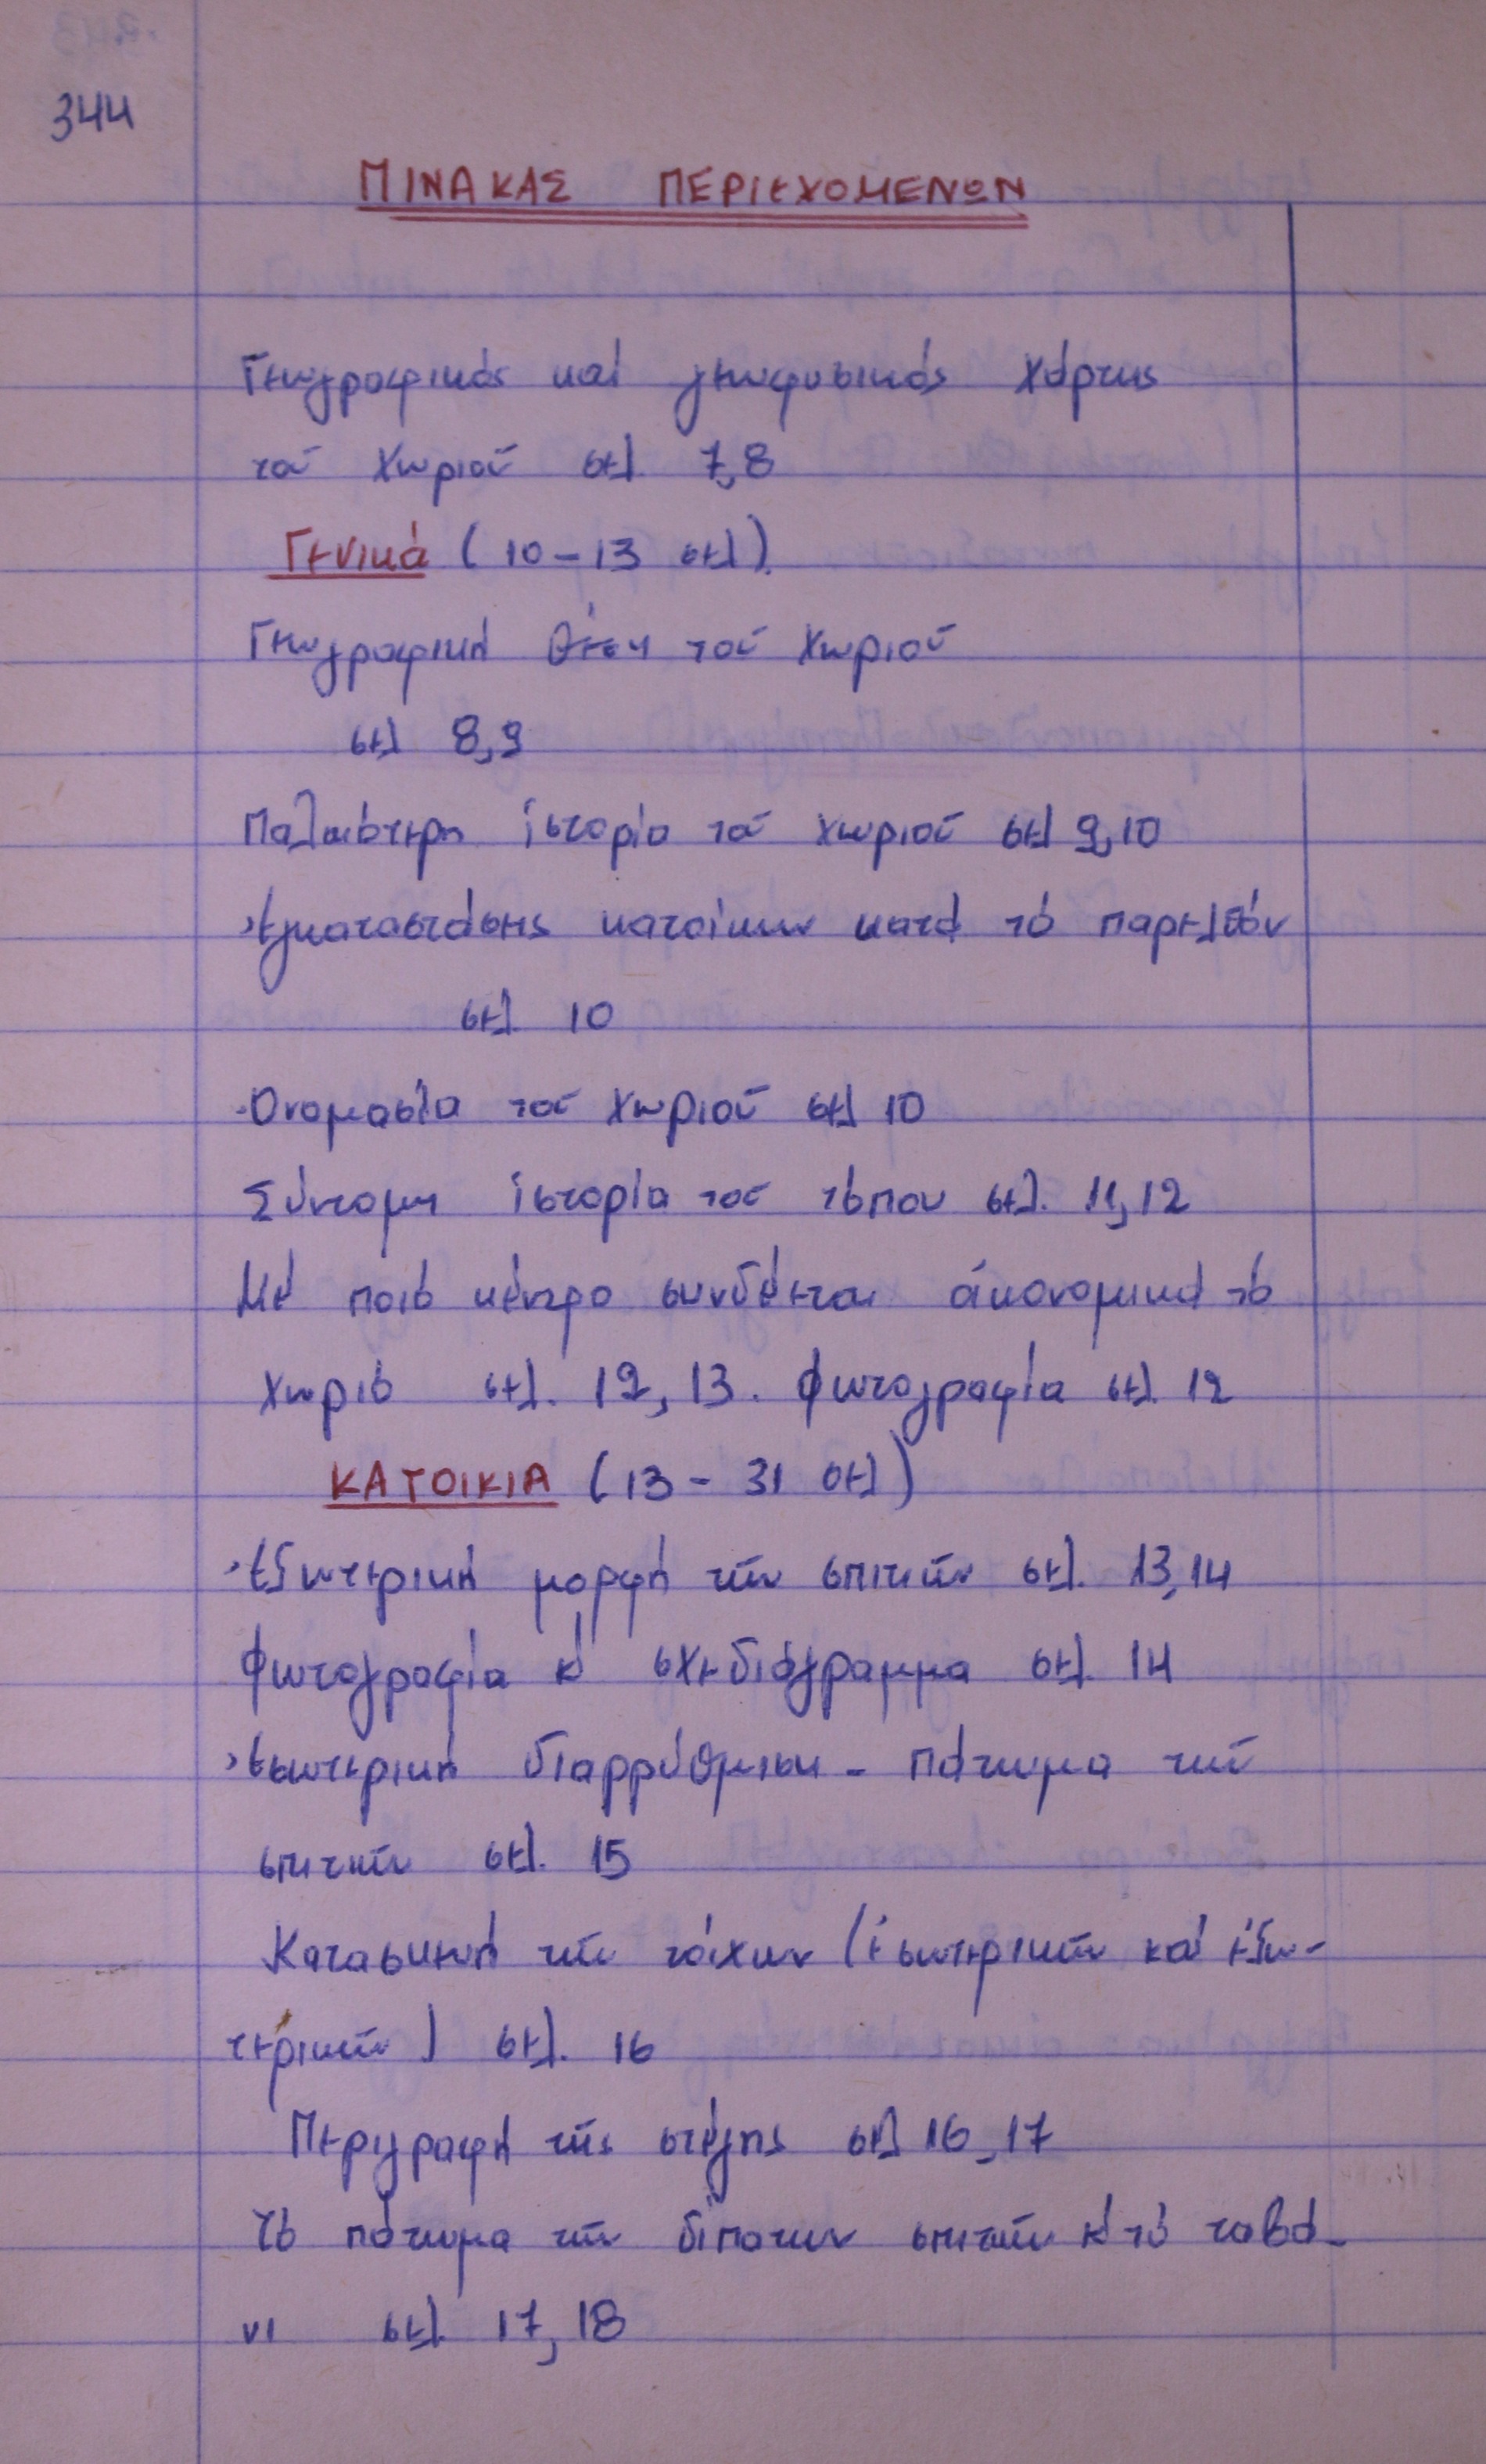 344
ΠΙΝΑΚΑΣ ΠΕΡΙΕΧΟΜΕΝΩΝ
Γεωγραφικός καί γεωφυσικός χάρτης
τοῦ χωριοῦ σελ. 7,8
Γενικά (10-13 σελ).
Γεωγραφική θέση τοῦ χωριοῦ
σελ 8,9
Παλαιότερη ἱστορία τοῦ χωριοῦ σελ 9,10
Ἐγκαταστάσεις κατοίκων κατά τό παρελθόν
σελ. 10
Ὀνομασία τοῦ χωριοῦ σελ 10
Σύντομη ἱστορία τοῦ τόπου σελ. 11,12
Μέ ποιό κέντρο συνδέεται οἰκονομικά τό
χωριό σελ. 12, 13. Φωτογραφία σελ. 12
ΚΑΤΟΙΚΙΑ (13 - 31 σελ)
Ἐξωτερική μορφή τῶν σπιτιῶν σελ. 13,14
Φωτογραφία κ' σχεδιάγραμμα σελ. 14
Ἐσωτερική διαρρύθμιση - πάτωμα τῶν
σπιτιῶν σελ. 15
Κατασκευή τῶν τοίχων (ἐσωτερικῶν καί ἐξω-
τερικῶν) σελ. 16
Περιγραφή τῆς στέγης σελ 16,17
Τό πάτωμα τῶν δίπατων σπιτιῶν κ' τό ταβά-
νι σελ. 17, 18